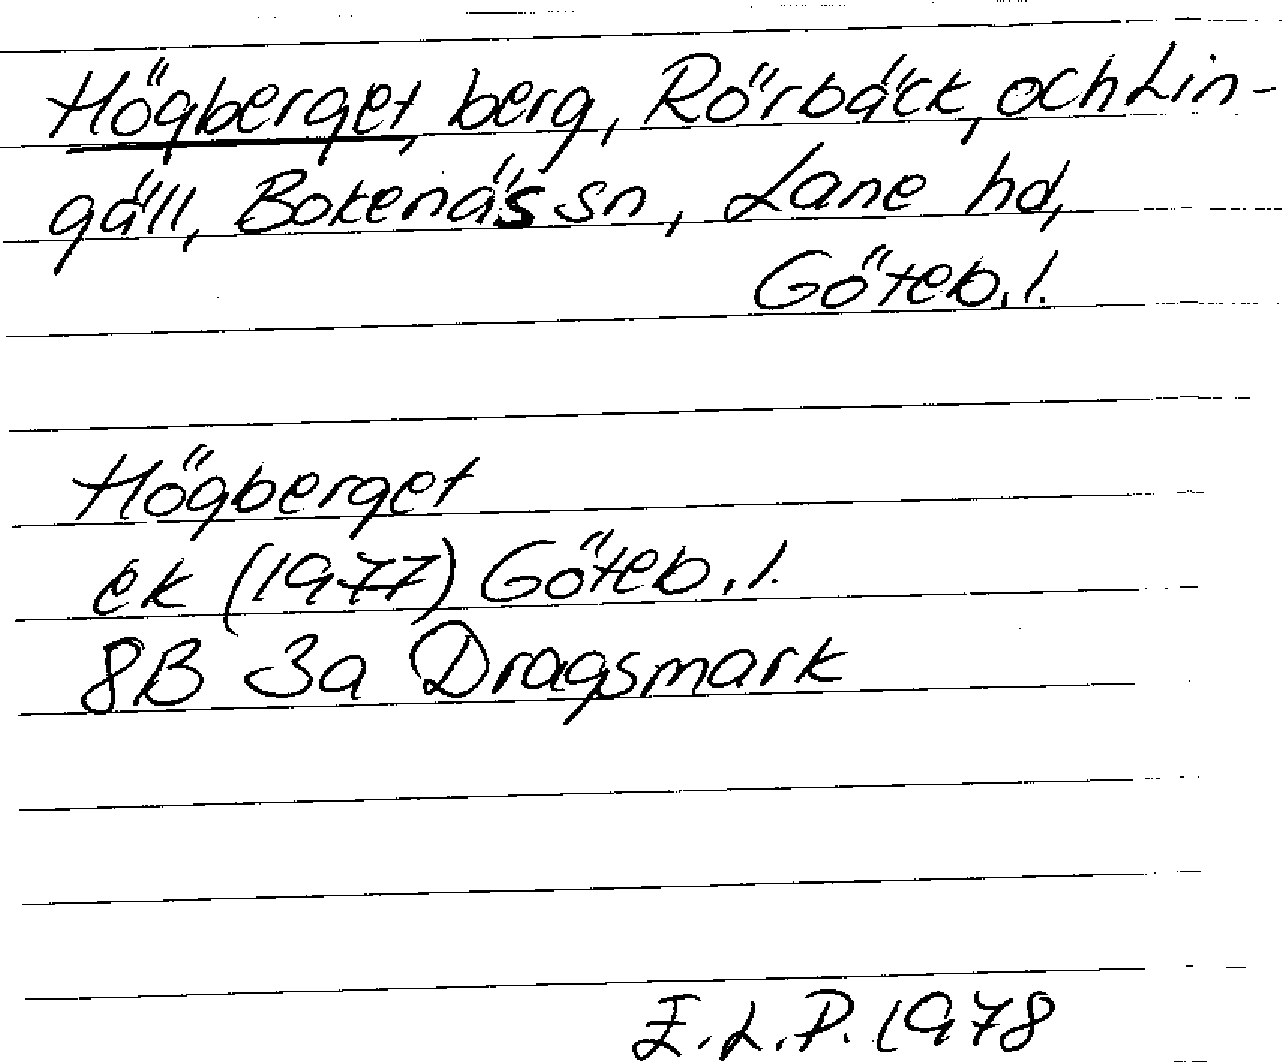 Högberget, berg, Rörbäck, och Lin-
gäll, Bokenäs sn, Lane hd,
Göteb. l.
Högberget
ek (1977) Göteb. l.
8B 3a Dragsmark
E.L.P. 1978